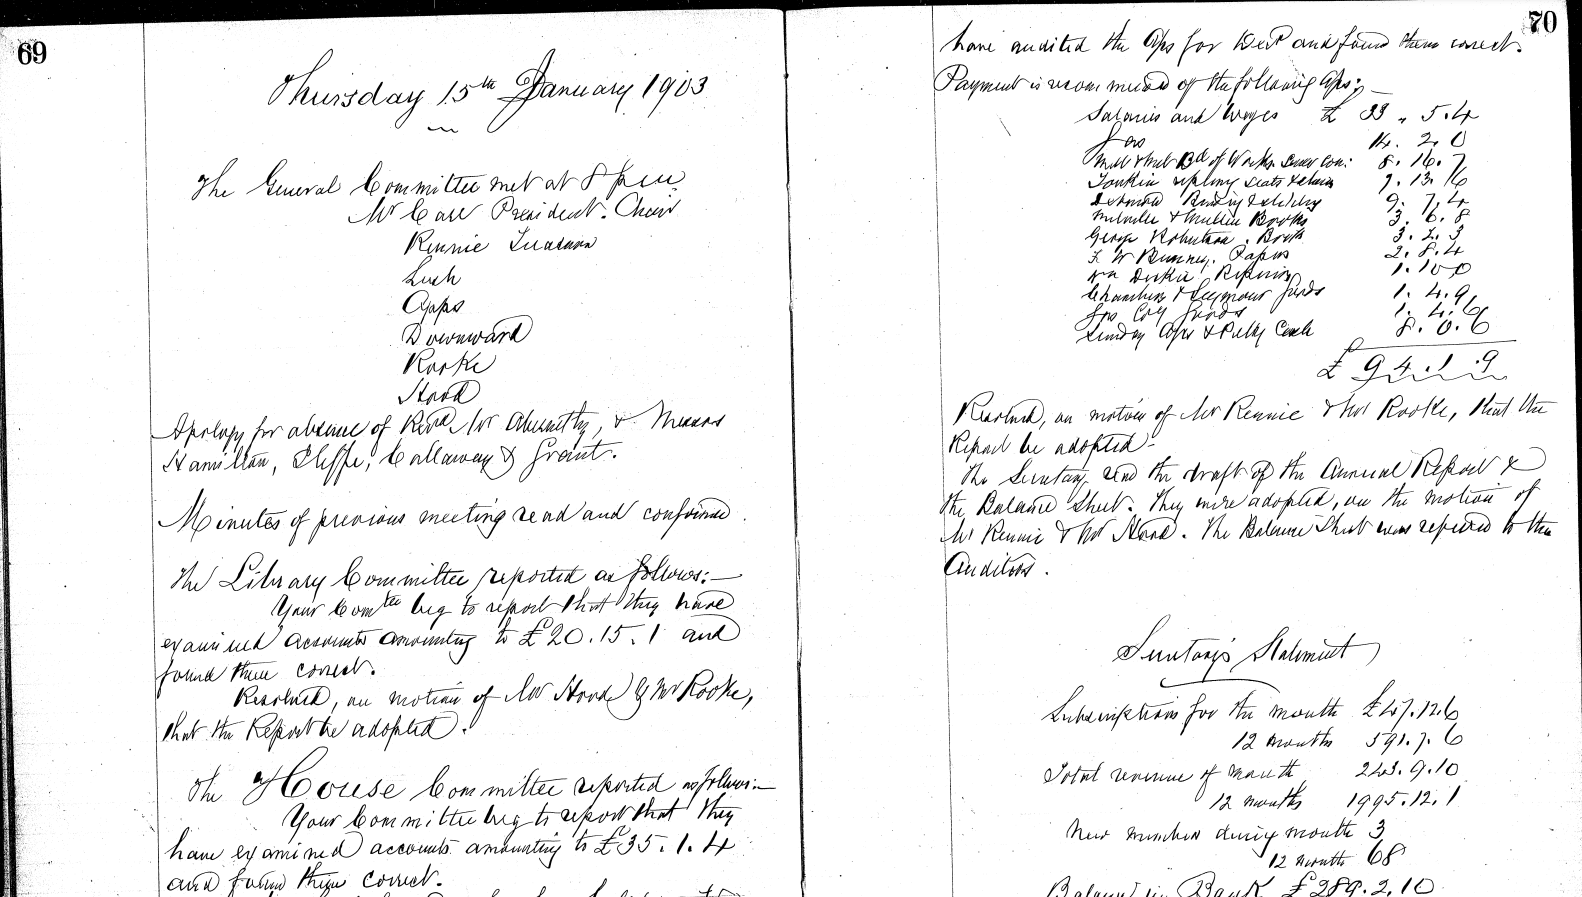 69
Thursday 15th January 1903
The General Committee met at 8 p.m.
Mr Carr President. Chair
Rennie Treasurer
Lush
Apps
Downward
Rooke
Hood
Apology for absence of Revd Mr Abernethy, & Messrs
Hamilton, Iliffe, Callaway & Grant.
Minutes of previous meeting read and confirmed.
The Library Committee reported as follows:—
Your Comtee beg to report that they have
examined accounts amounting to £20.15.1 and
found them correct.
Resolved, on motion of Mr Hood & Mr Rooke,
that the Report be adopted.
The House Committee reported as follows:—
Your Committee beg to report that they
have examined accounts amounting to £35.1.4
and found them correct.
70
have audited the a/cs for Decr and found them correct.
Payment is recommended of the following a/cs:—
Salaries and wages £ 33 " 5.4
Gas 14. 2. 0
Melb & Met Bd of Works Sewer Con: 8. 16. 7
Tonkin repairing seats & chairs
Binding 9. 7. 4
Melville & Mullen Books 3. 6. 8
George Robertson. Books 3. 2. 3
Papers 2. 8. 4
Wm Repairing 1. 10 0
Chambers & Seymour Goods 1. 4. 9
Gas Coy Goods 1. 4. 6
Sundry a/cs & Petty Cash 8. 0. 6
£ 94. 1. 9
Resolved, on motion of Mr Rennie & Mr Rooke, that the
Report be adopted.
The Secretary read the draft of the Annual Report &
the Balance Sheet. They were adopted, on the motion of
Mr Rennie & Mr Hood. The Balance Sheet was referred to the
Auditors.
Secretary's Statement
Subscriptions for the month £47.12.6
12 months 591.7.6
Total revenue of month 243.9.10
12 months 1995.12.1
New members during month 3
12 months 68
Balance in Bank £289.2.10